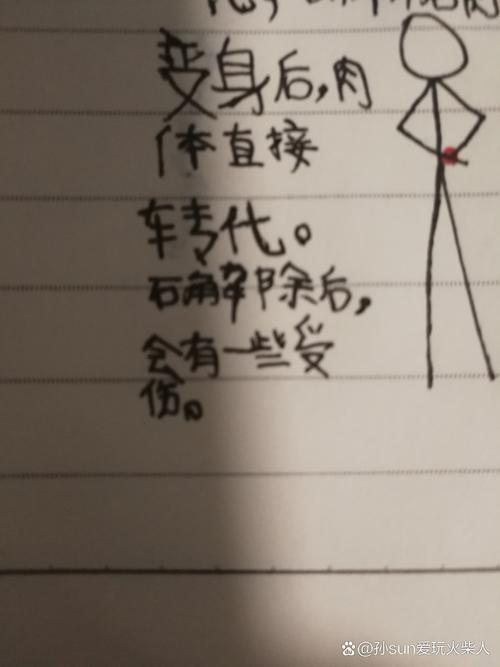 变身后,肉
体直接
转代。
石解除后,
会有一些受
伤。
@孙sun爱玩火柴人